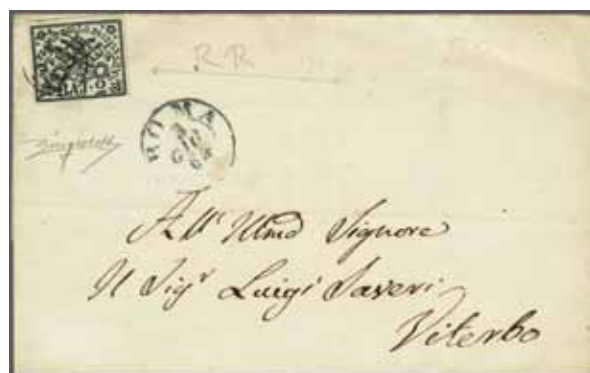 BAJ 2
R R
ROMA
All' Illmo Signore
Il Sigr Luigi Saveri
Viterbo